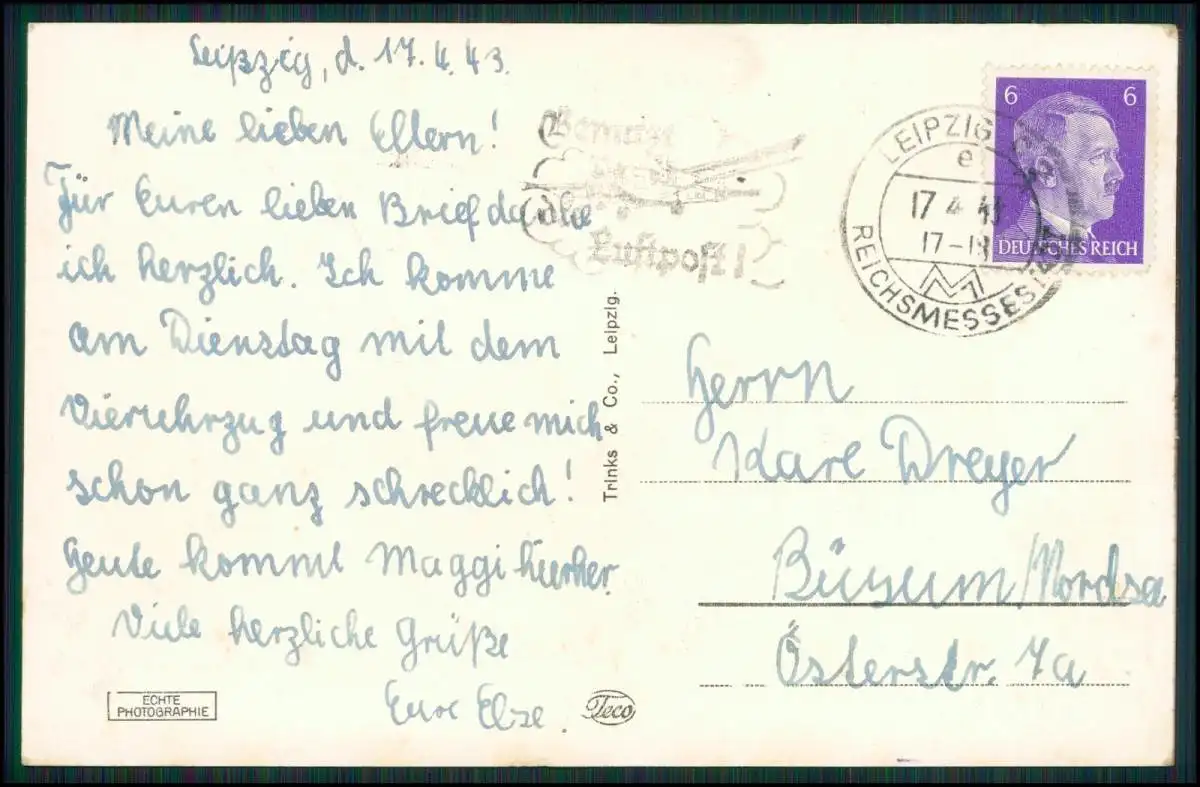 Leipzig, d. 17.4.43.
Meine lieben Eltern!
Für Euren lieben Brief danke
ich herzlich. Ich komme
am Dienstag mit dem
Vieruhrzug und freue mich
schon ganz schrecklich!
Heute kommt Maggi hierher.
Viele herzliche Grüße
Eure Else.
ECHTE
PHOTOGRAPHIE
Teco
Trinks & Co., Leipzig.
Benutzt
die
Luftpost!
LEIPZIG
e
17 4 43
17-18
REICHSMESSESTADT
6 6
DEUTSCHES REICH
Herrn
Karl Dreyer
Büsum/Nordsee
Österstr. 7a